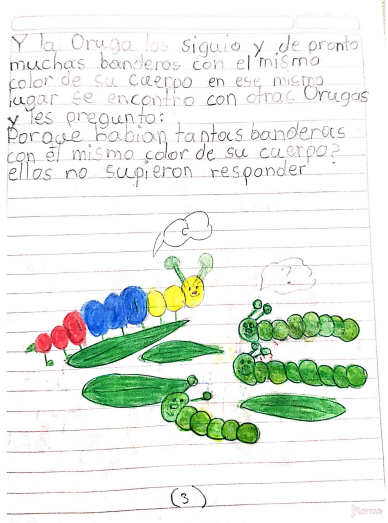 Y la Oruga los siguio y de pronto
muchas banderos con el mismo
color de su cuerpo en ese mismo
lugar se encontro con otras Orugas
y les pregunto:
Porque habian tantas banderas
con el mismo color de su cuerpo?
ellos no supieron responder
?
(3)
Norma